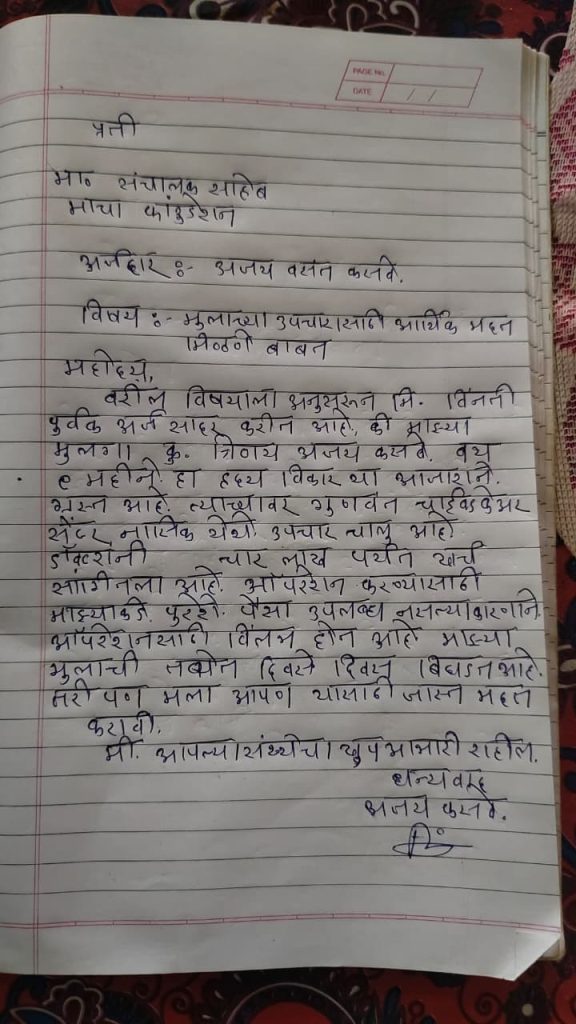 PAGE No.
DATE / /
प्रती
मा॰ संचालक साहेब
माचा फांउडेशन
अर्जदार :- अजय वसंत कसबे.
विषय :- मुलाच्या उपचारासाठी आर्थिक मदत
मिळणे बाबत
महोदय,
वरील विषयाला अनुसरून मि. विंनती
पुर्वक अर्ज सादर करीत आहे, की माझ्या
मुलगा कु. त्रिणय अजय कसबे. वय
९ महीने. हा हृदय विकार या आजाराने.
ग्रस्त आहे. त्याच्यावर गुणवंत चाईल्डकेअर
सेंटर नासिक येथे उपचार चालु आहे
डॉक्टरांनी चार लाख पर्यंत खर्च
सांगीतला आहे. ऑपरेशन करण्यासाठी
माझ्याकडे. पुरेशे. पैसा उपलब्ध नसल्याकारणाने.
ऑपरेशनसाठी विलंब होत आहे माझ्या
मुलाची तब्येत दिवसे दिवस बिघडत आहे.
तरी पण मला आपण यासाठी जास्त मदत
करावी.
मी. आपल्या संस्थेचा खुप आभारी राहील.
धन्यवाद
अजय कसबे.